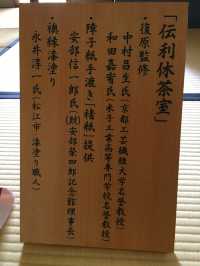 「伝利休茶室」
・復原監修
中村昌生氏(京都工芸繊維大学名誉教授)
和田嘉宥氏(米子工業高等専門学校名誉教授)
・障子紙手漉き「楮紙」提供
安部信一郎氏((財)安部榮四郎記念館理事長)
・襖縁漆塗り
永井淳一氏(松江市 漆塗り職人)